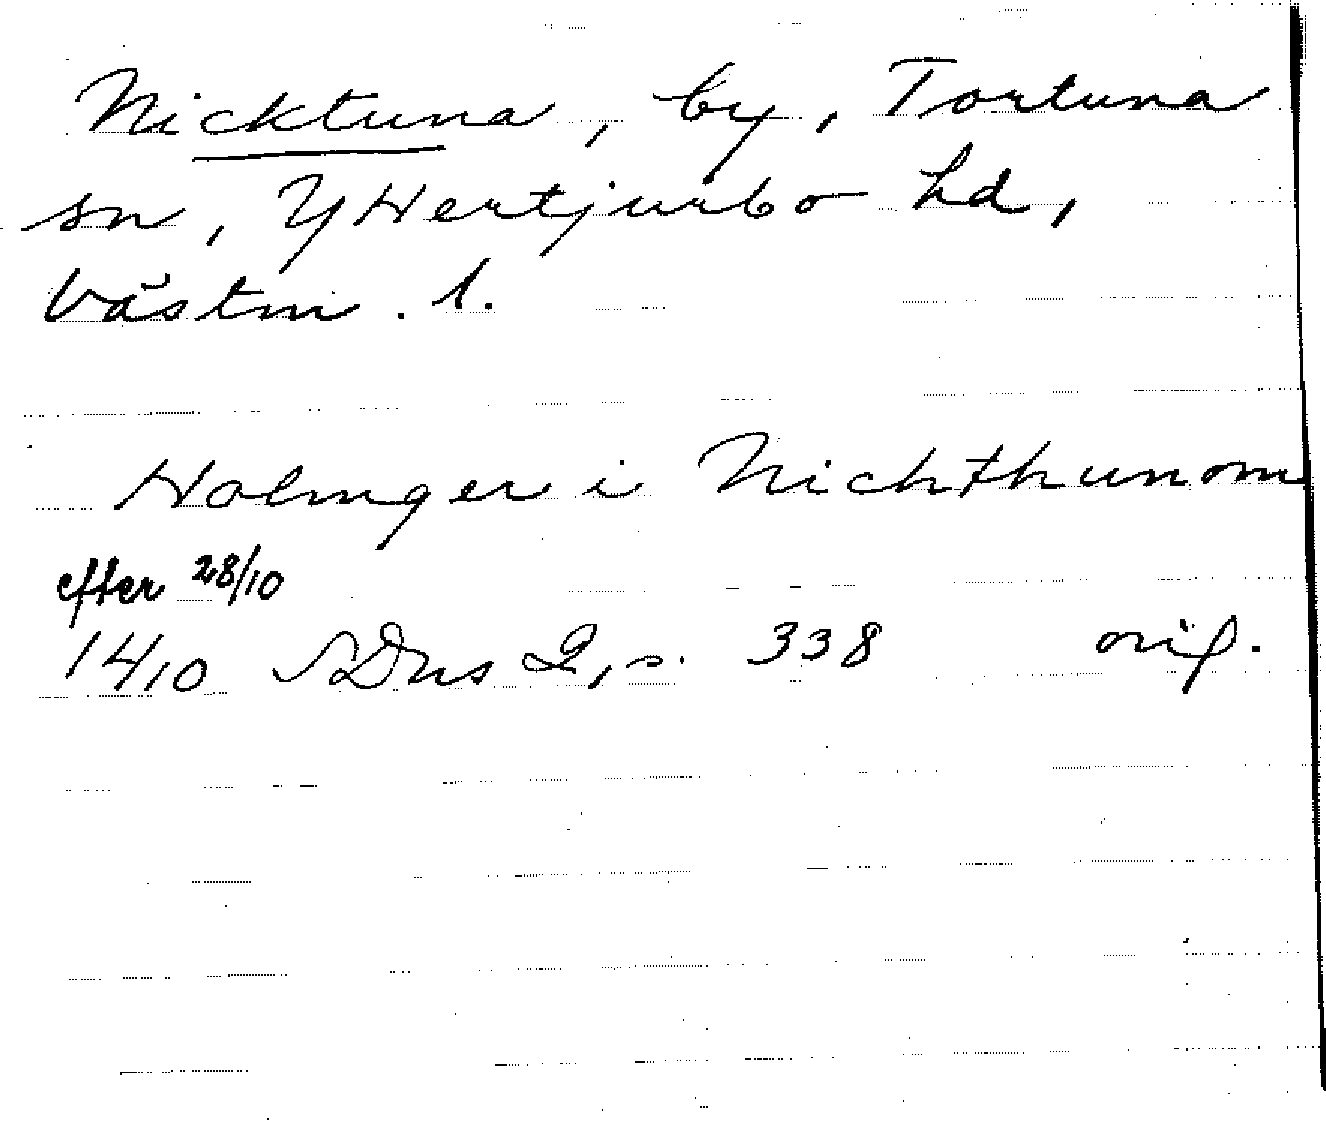 Nicktuna, by, Tortuna
sn, Ytertjurbo hd,
Västm. l.
Holmger i Nichthunom
efter 28/10
1410 SDns 2, s. 338 orig.